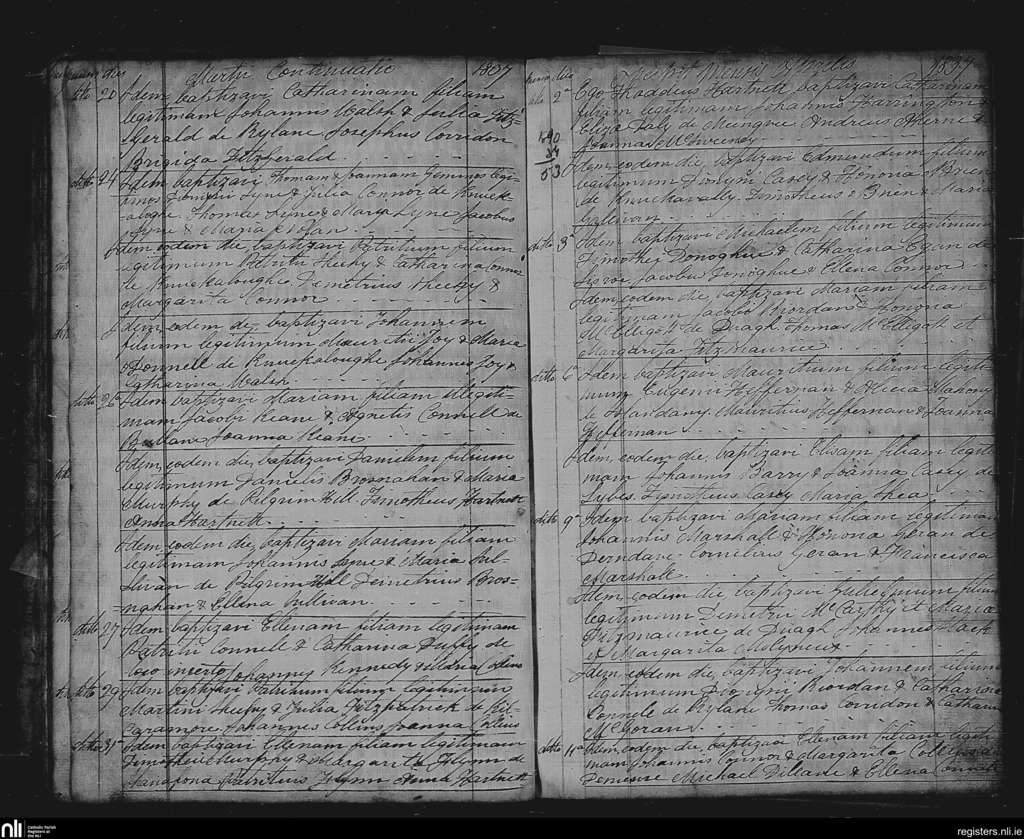 Martii Continuatio 1837
ditto 20 Idem baptizavi Catharinam filiam
legitimam Johannis Walsh & Julia Fitz-
Gerald de Rylane Josephus Corridon
Brigida FitzGerald
ditto 24 Idem baptizavi Thomam & Joannam Geminos legi-
timos Dionysii Lyne & Julia Connor de Knuck-
aloghe Thomas Lyne & Maria Lyne Jacobus
Lyne & Maria
Idem eodem die baptizavi Patritium filium
legitimum Patritii Sheehy & Catharina Connor
de Knuckaloughe Demetrius Sheehy &
Margarita Connor
Idem eodem die baptizavi Johannem
filium legitimum Mauritii Joy & Maria
Connell de Knuckaloughe Johannes Joy &
Catharina Walsh
ditto 26 Idem baptizavi Mariam filiam illegiti-
mam Jacobi Keane & Agnetis Connell de
Joanna Keane
Idem eodem die baptizavi Danielem filium
legitimum Danielis Brosnahan & Maria
Murphy de Pilgrim Hill Timotheus Hartnett
Anna Hartnett
Idem eodem die baptizavi Mariam filiam
legitimam Johannis Lyne & Maria Sul-
livan de Pilgrim Hill Demetrius Bros-
naghan & Ellena Sullivan
ditto 27 Idem baptizavi Ellenam filiam legitimam
Patritii Connell & Catharina Duffy de
loco incerto Johannes Kennedy & Maria
ditto 29 Idem baptizavi Patritium filium legitimum
Martini Sheehy & Julia Fitzpatrick de Kil-
Johannes Collins Joanna Collins
ditto 31 Idem baptizavi Ellenam filiam legitimam
Timothei Murphy & Margarita Flynn de
Patritius Flynn Anna Hartnett
Mensis Aprilis 1837
2a Ego Thaddeus Hartnett baptizavi Catharinam
filiam legitimam Johannis Harrington &
Eliza Daly de Meingvee Andreas Aherne &
Joanna McSweeney
Idem eodem die baptizavi Edmundum filium
legitimum Dionysii Casey & Honora Brien
de Knuckavally Timotheus O Brien & Maria
Galivan
ditto 3a Idem baptizavi Michaelem filium legitimum
Timothei Donoghue & Catharina Egan de
Lisroe Jacobus Donoghue & Ellena Connor
Idem eodem die baptizavi Mariam filiam
legitimam Jacobi Riordan & Honora
McElligott de Duagh Thomas McElligott et
Margarita FitzMaurice
ditto 6a Idem baptizavi Mauritium filium legiti-
mum Eugenii Hefferman & Alicia Mahony
Mauritius Heffernan & Joanna
Heffernan
Idem eodem die baptizavi Elisam filiam legiti-
mam Johannis Barry & Joanna Casey de
Lybes Timotheus Casey Maria Shea
ditto 9a Idem baptizavi Mariam filiam legitimam
Johannis Marshall & Honora Geran de
Derndave Cornelius Geran & Francisca
Marshall
Idem eodem die baptizavi Gulielmum filium
legitimum Demetrii McCarthy et Maria
Fitzmaurice de Duagh Johannes Stack
et Margarita Molyneux
Idem eodem die baptizavi Johannem filium
legitimum Dionysii Riordan & Catharina
Connele de Rylane Thomas Corridon & Catharina
McGoran
ditto 11a Idem eodem die baptizavi Ellenam filiam legiti-
mam Johannis Connor & Margarita
Michael Dillane & Ellena Connor
490
53
nli Catholic Parish
Registers at
the NLI
registers.nli.ie